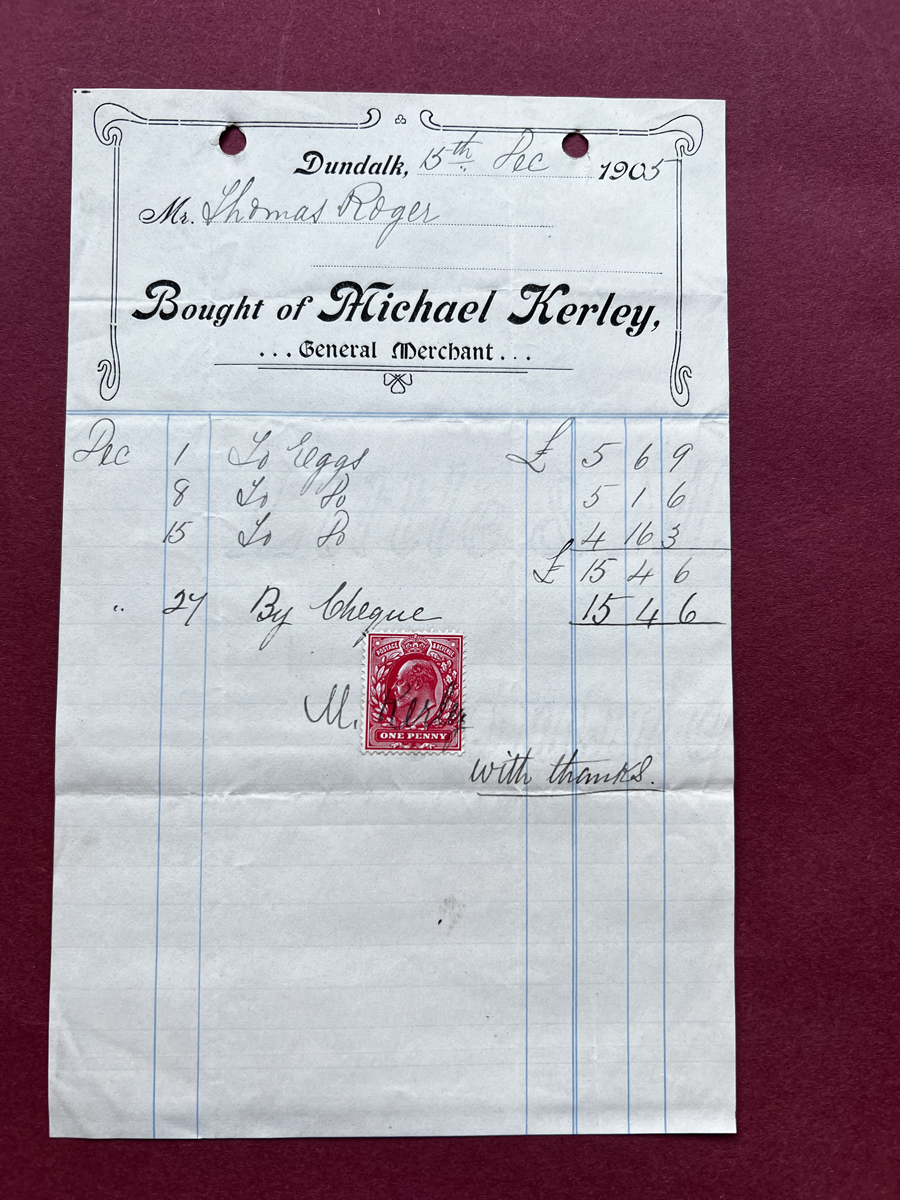 Dundalk, 15th Dec 1905
Mr. Thomas Roger
Bought of Michael Kerley,
... General Merchant ...
Dec 1 To Eggs £ 5 6 9
8 To Do 5 1 6
15 To Do 4 16 3
£ 15 4 6
" 27 By Cheque 15 4 6
POSTAGE & REVENUE
M. Kerley
ONE PENNY
with thanks.